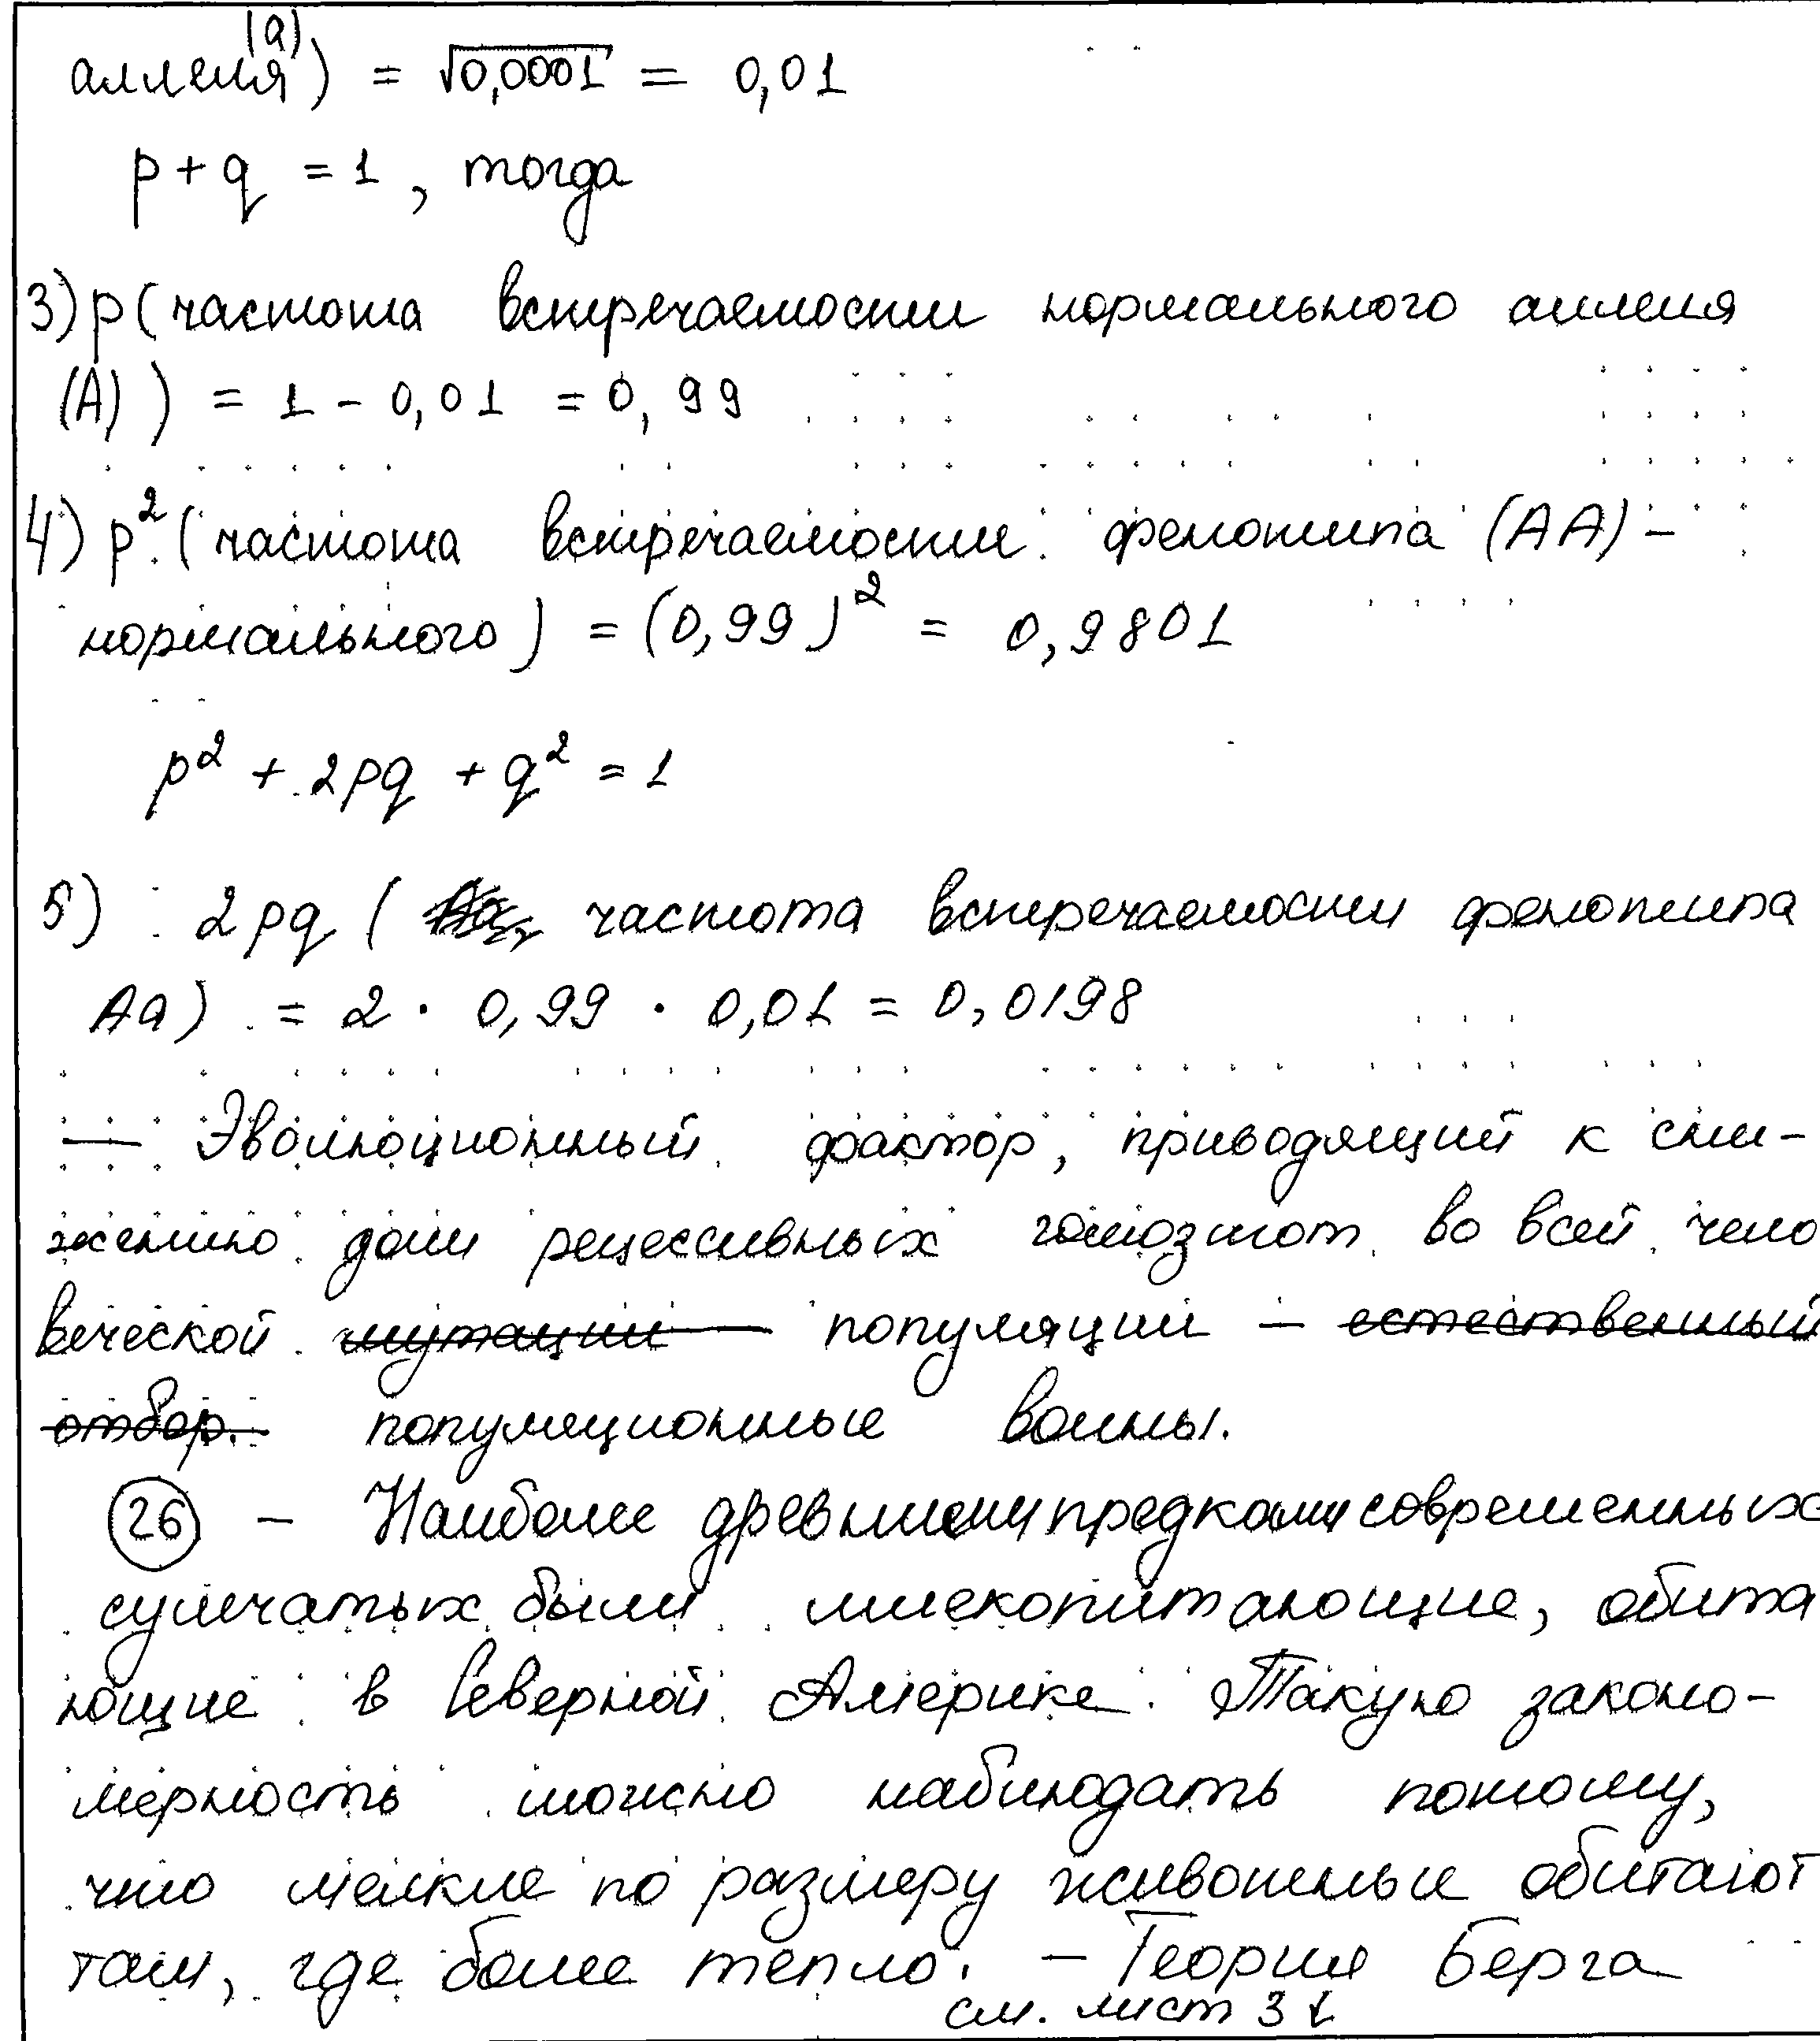 (a)
аллеля) = √0,0001 = 0,01
p + q = 1 , тогда
3) p ( частота встречаемости нормального аллеля
(A) ) = 1 - 0,01 = 0,99
4) p² ( частота встречаемости фенотипа (AA) -
нормального ) = (0,99)² = 0,9801
p² + 2pq + q² = 1
5) 2pq ( частота встречаемости фенотипа
Aa) = 2 · 0,99 · 0,01 = 0,0198
— Эволюционный фактор, приводящий к сни-
жению доли рецессивных гомозигот во всей чело
веческой мутации — популяции – естественный
отбор. популяционные волны.
26 – Наиболее древними предками современных
сумчатых были млекопитающие, обита
ющие в Северной Америке. Такую законо-
мерность можно наблюдать потому,
что мелкие по размеру животные обитают
там, где более тепло. – Теория Берга
см. лист 31